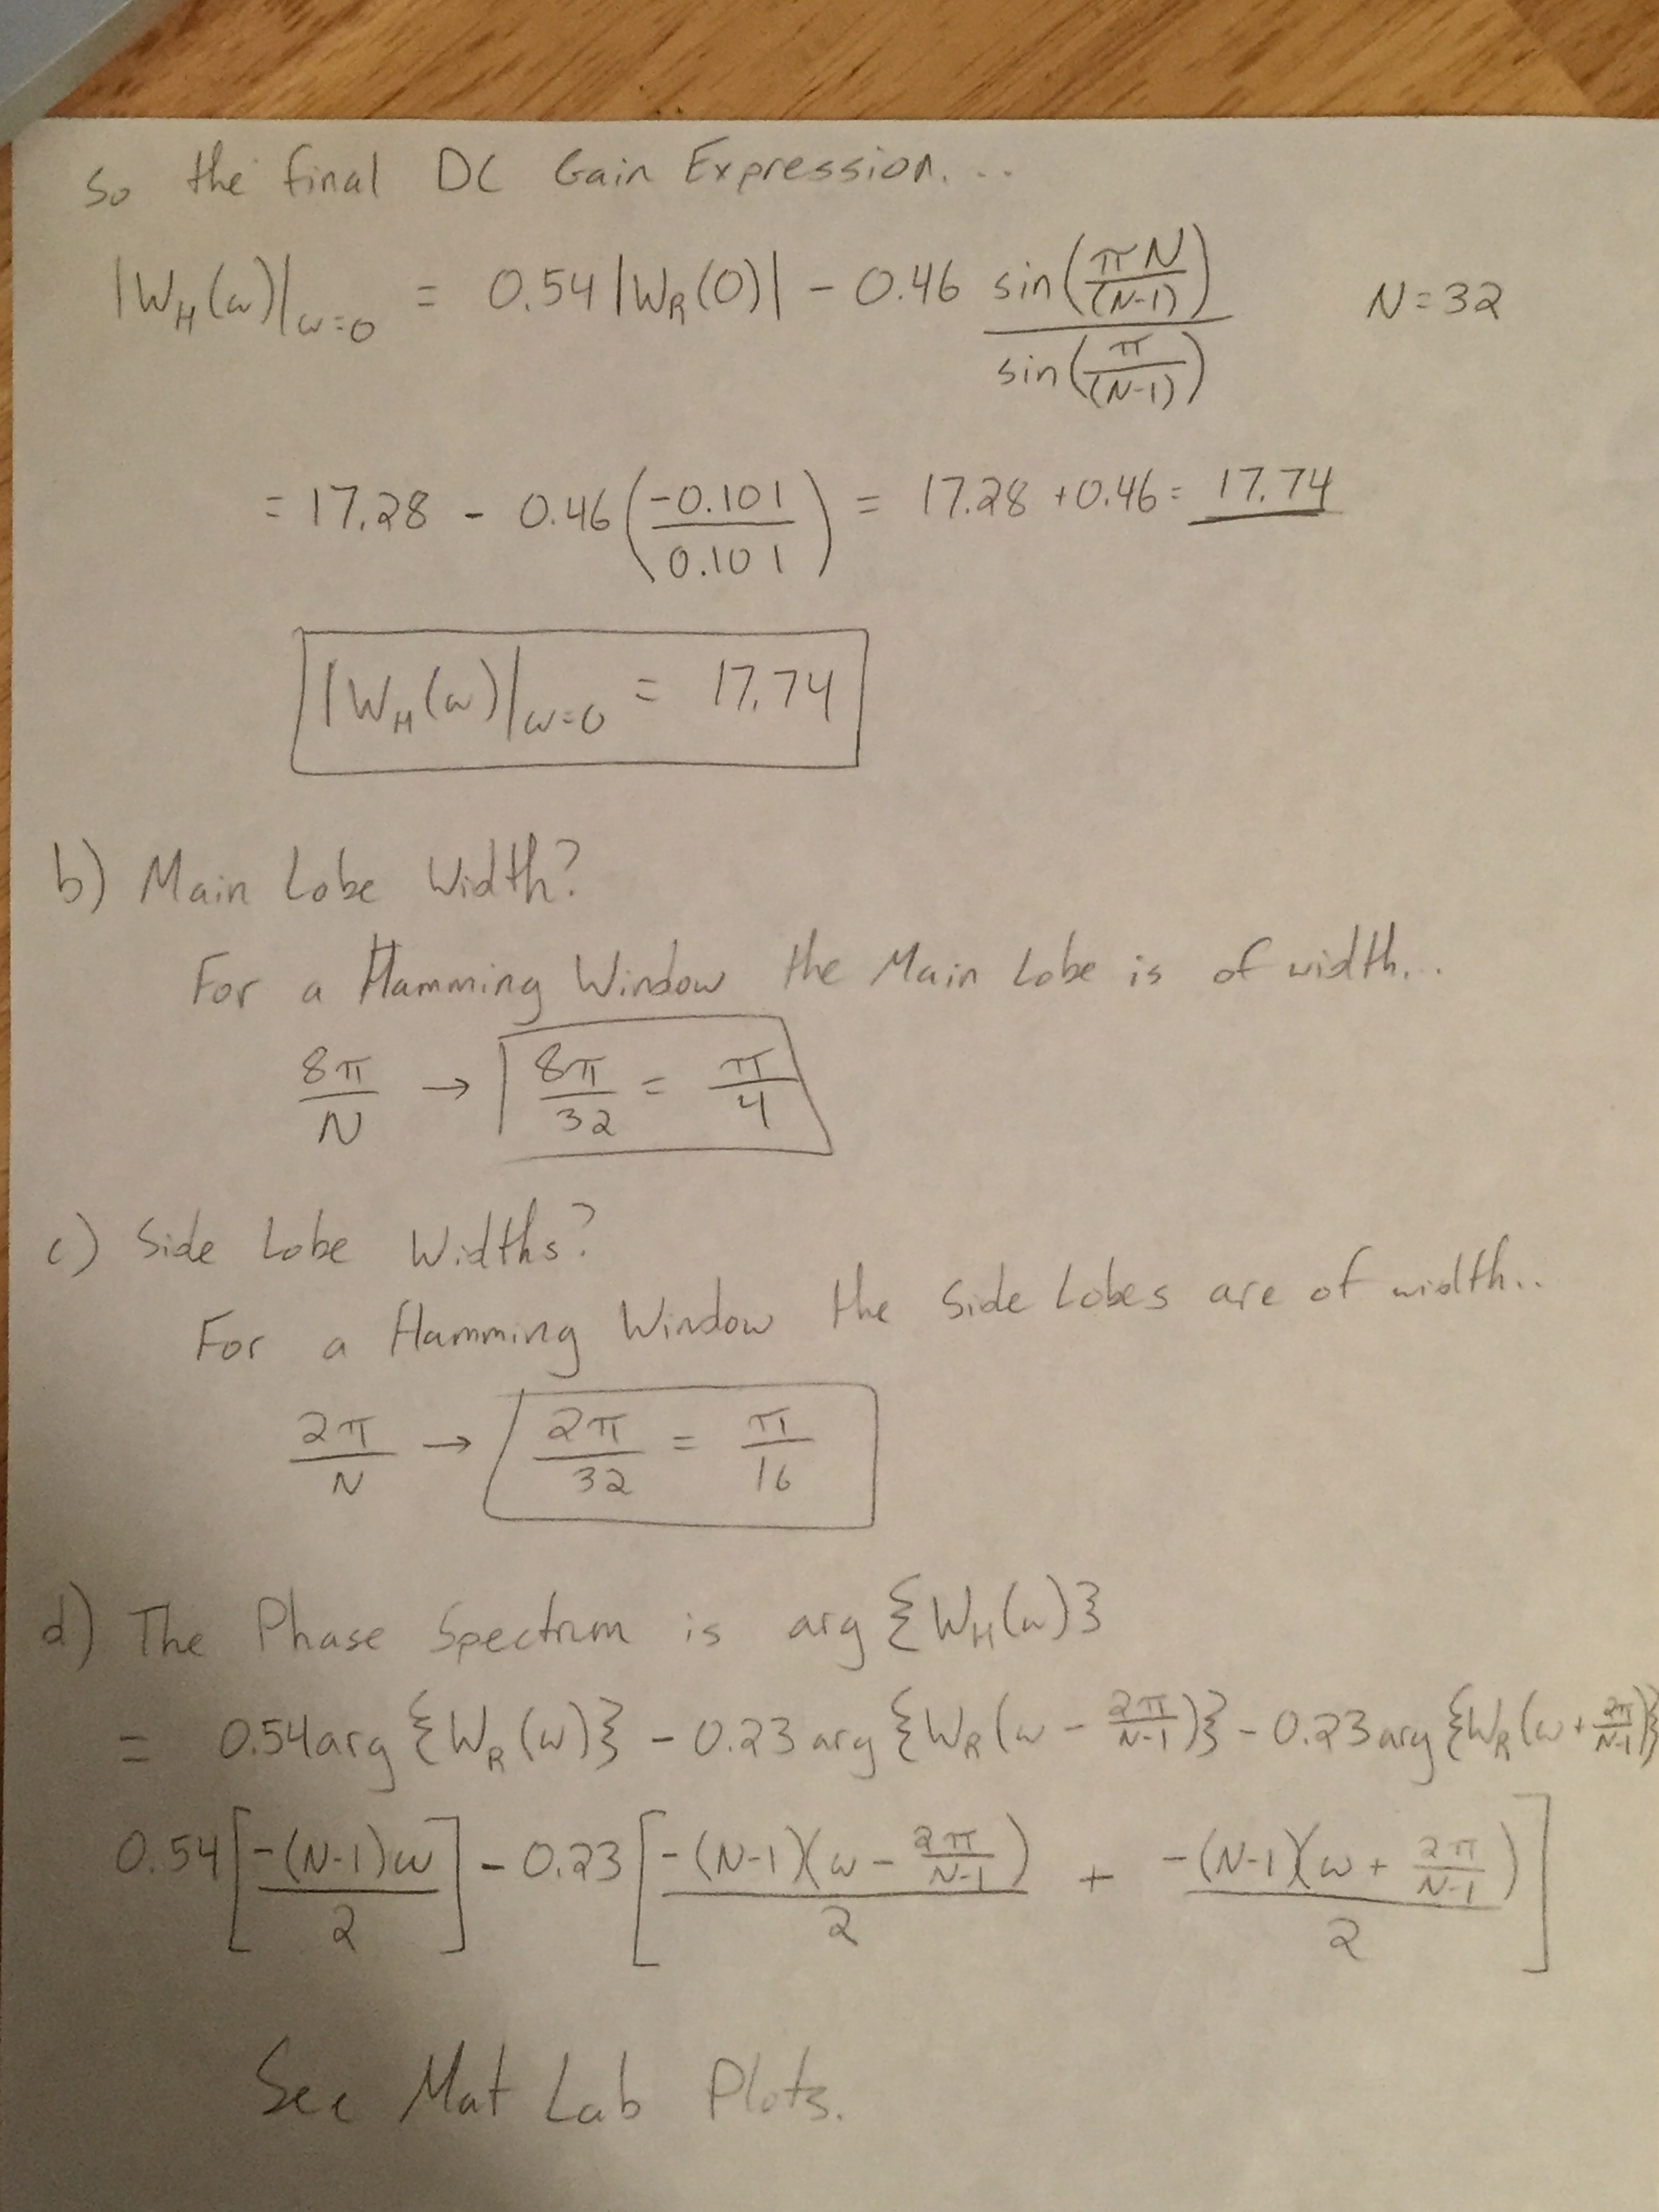 So the final DC Gain Expression...
|W_H(ω)|_ω=0 = 0.54|W_R(0)| - 0.46 sin(πN/(N-1)) / sin(π/(N-1)) N=32
= 17.28 - 0.46(-0.101/0.101) = 17.28 + 0.46 = 17.74
|W_H(ω)|_ω=0 = 17.74
b) Main Lobe Width?
For a Hamming Window the Main Lobe is of width...
8π/N → 8π/32 = π/4
c) Side Lobe Widths?
For a Hamming Window the Side Lobes are of width..
2π/N → 2π/32 = π/16
d) The Phase Spectrum is arg{W_H(ω)}
= 0.54arg{W_R(ω)} - 0.23 arg{W_R(ω - 2π/N-1)} - 0.23 arg{W_R(ω + 2π/N-1)}
0.54[-(N-1)ω/2] - 0.23[-(N-1)(ω - 2π/N-1)/2 + -(N-1)(ω + 2π/N-1)/2]
See Mat Lab Plots.